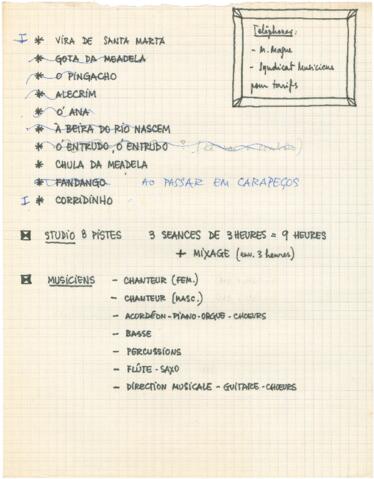 I * VIRA DE SANTA MARTA
* GOTA DA MEADELA
* O PINGACHO
* ALECRIM
* Ó ANA
* À BEIRA DO RIO NASCEM
* O ENTRUDO, Ó ENTRUDO
* CHULA DA MEADELA
* FANDANGO AO PASSAR EM CARAPEÇOS
I * CORRIDINHO
Téléphones:
- M. Magne
- Syndicat Musiciens
pour tarifs
STUDIO 8 PISTES 3 SEANCES DE 3 HEURES = 9 HEURES
+ MIXAGE (env. 3 heures)
MUSICIENS - CHANTEUR (FEM.)
- CHANTEUR (MASC.)
- ACCORDÉON - PIANO - ORGUE - CHŒURS
- BASSE
- PERCUSSIONS
- FLÛTE - SAXO
- DIRECTION MUSICALE - GUITARE - CHŒURS